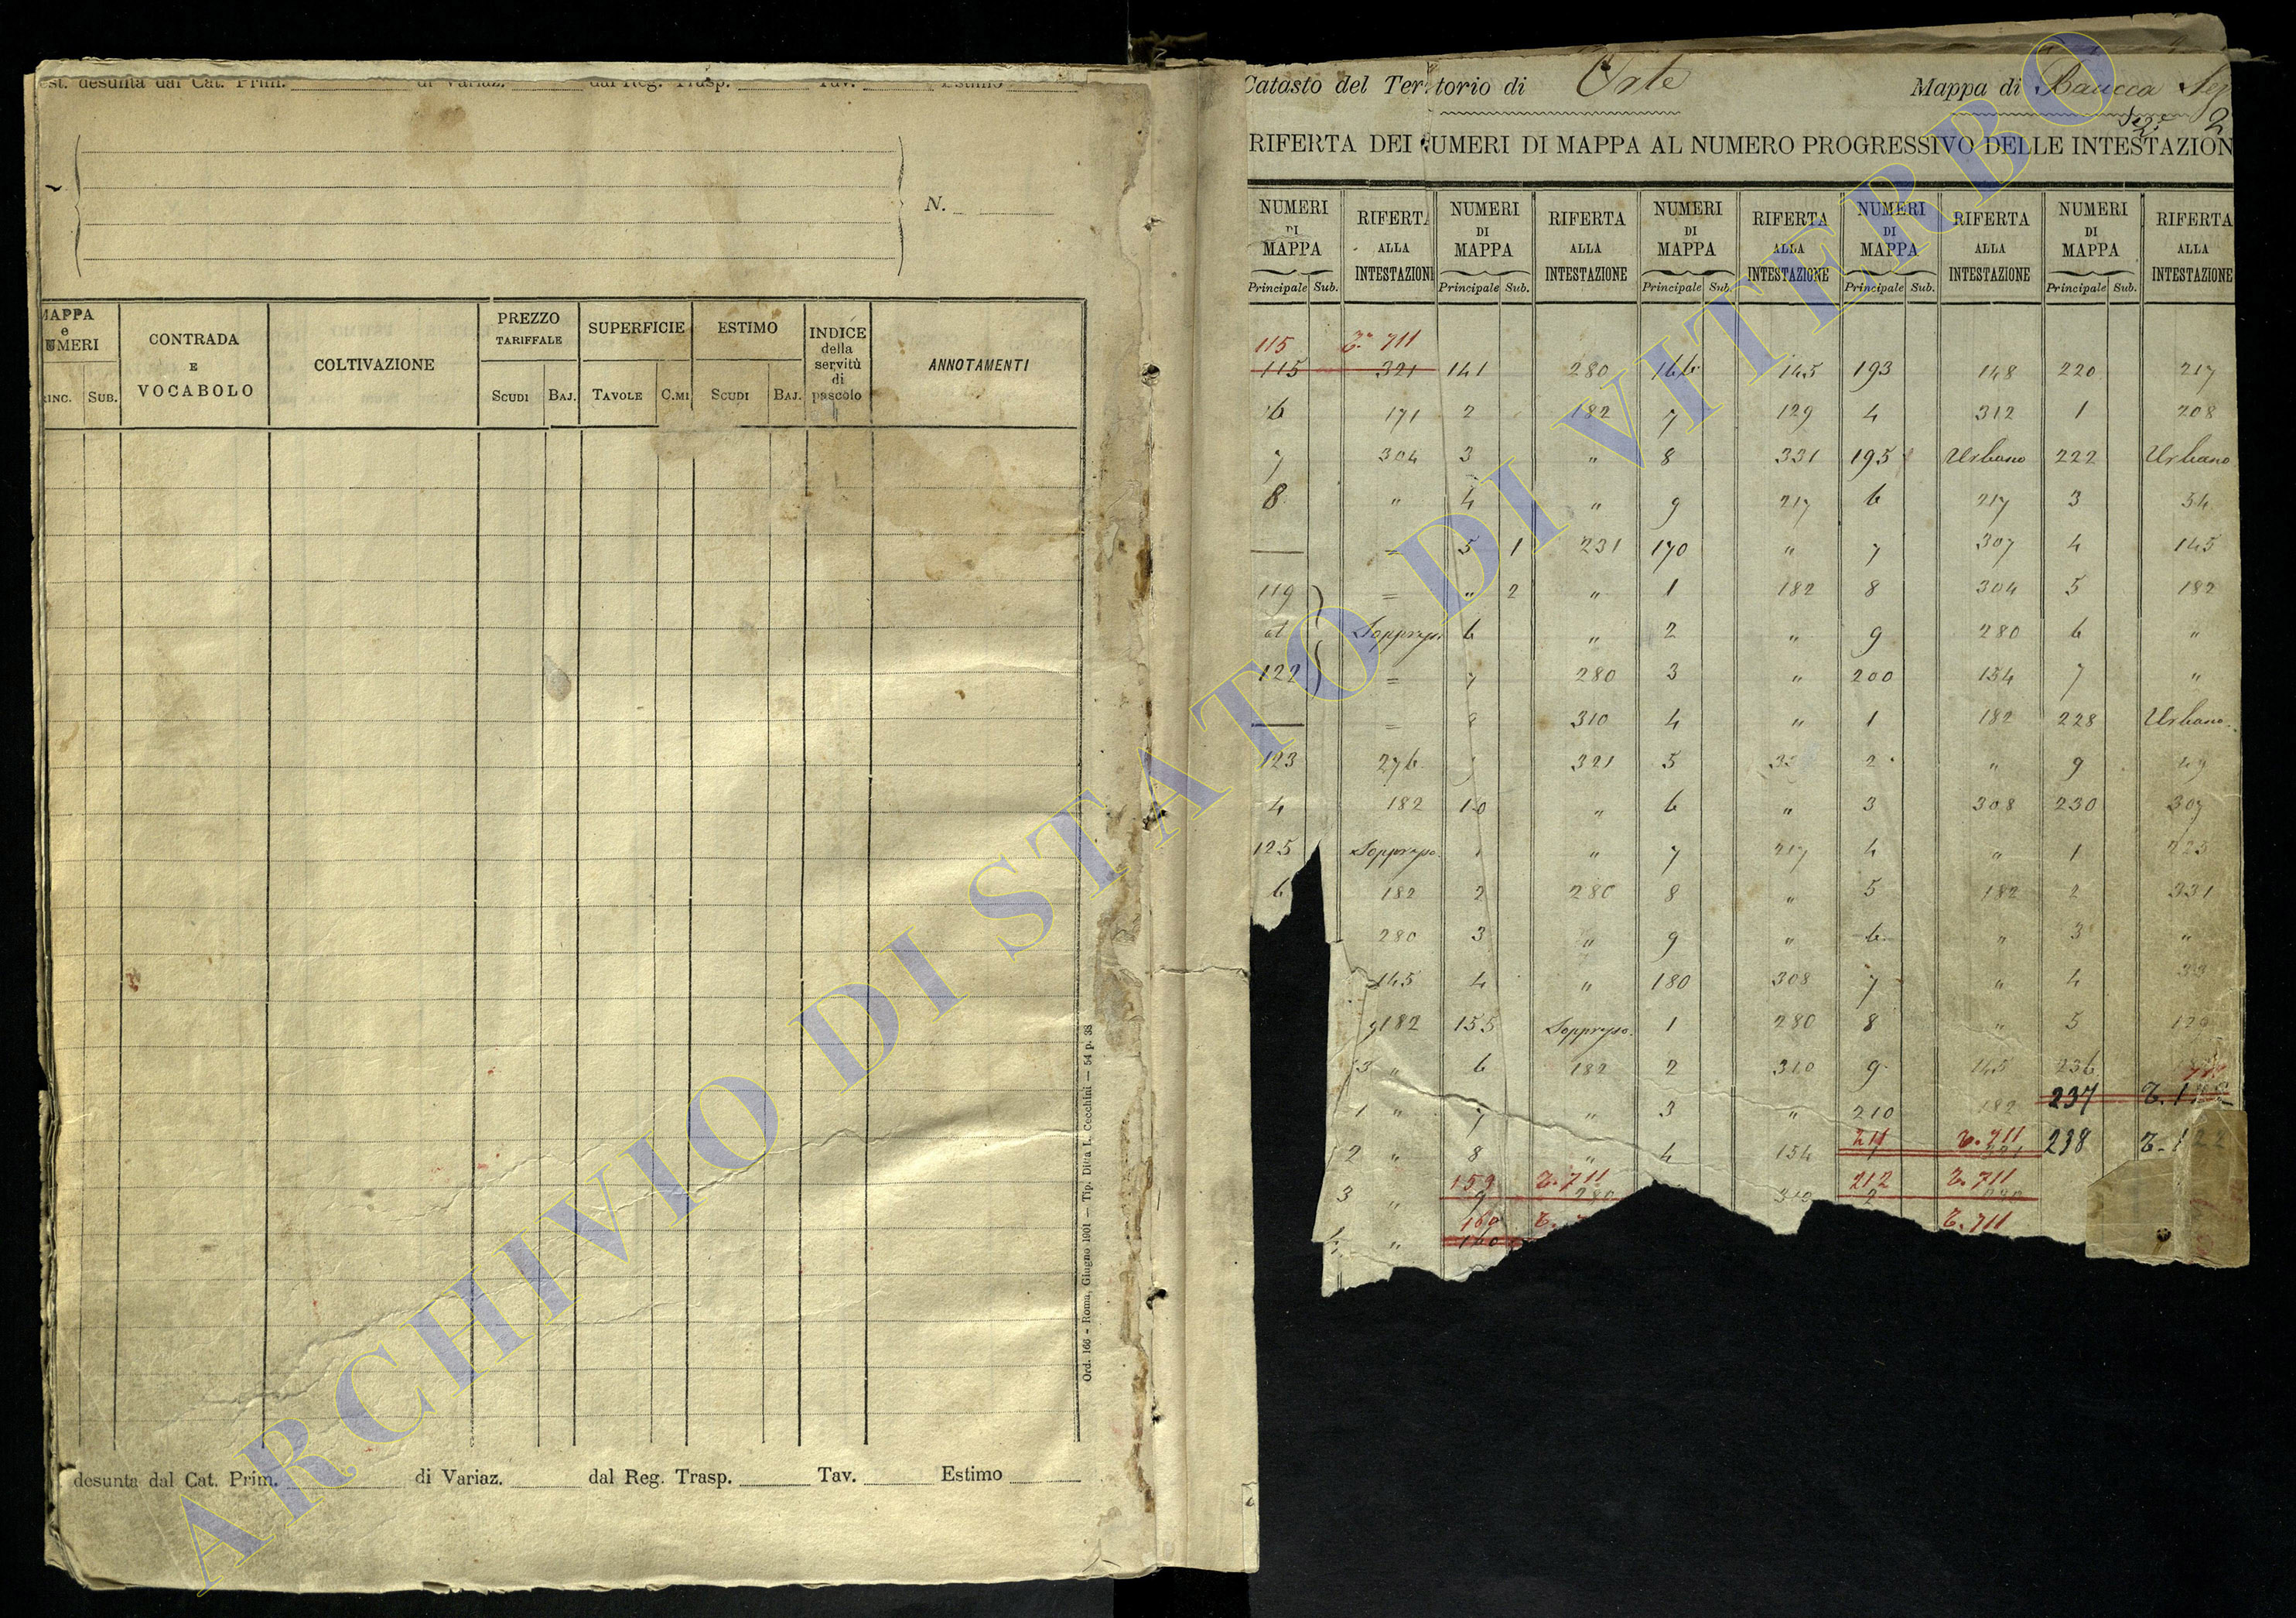 est. desunta dal Cat. Prim. di Variaz. dal Reg. Trasp. Tav. Estimo
N.
MAPPA e NUMERI
CONTRADA E VOCABOLO
COLTIVAZIONE
PREZZO TARIFFALE
SUPERFICIE
ESTIMO
INDICE della servitù di pascolo
ANNOTAMENTI
RINC. SUB. SCUDI BAJ. TAVOLE C.MI SCUDI BAJ.
Ord. 166 - Roma, Giugno 1901 — Tip. Ditta L. Cecchini — 54 p. 38
desunta dal Cat. Prim. di Variaz. dal Reg. Trasp. Tav. Estimo
Catasto del Territorio di Orte Mappa di Baucca
2
RIFERTA DEI NUMERI DI MAPPA AL NUMERO PROGRESSIVO DELLE INTESTAZION
NUMERI DI MAPPA RIFERTA ALLA INTESTAZIONE NUMERI DI MAPPA RIFERTA ALLA INTESTAZIONE NUMERI DI MAPPA RIFERTA ALLA INTESTAZIONE NUMERI DI MAPPA RIFERTA ALLA INTESTAZIONE NUMERI DI MAPPA RIFERTA ALLA INTESTAZIONE
Principale Sub. Principale Sub. Principale Sub. Principale Sub. Principale Sub.
115 T. 711
115 321 141 280 166 145 193 148 220 217
6 171 2 182 7 129 4 312 1 208
7 304 3 " 8 331 195 Urbano 222 Urbano
8 " 4 " 9 217 6 217 3 54
— = 5 1 231 170 " 7 307 4 145
119 = " 2 " 1 182 8 304 5 182
al Soppressi 6 " 2 " 9 280 6 "
122 = 7 280 3 " 200 154 7 "
— = 8 310 4 " 1 182 228 Urbano
123 276 9 321 5 2 " 9 49
4 182 10 " 6 " 3 308 230 307
125 Soppresso 1 " 7 217 4 " 1 225
6 182 2 280 8 " 5 182 2 331
280 3 " 9 " 6 " 3 "
145 4 " 180 308 7 " 4
182 155 Soppresso 1 280 8 " 5
3 " 6 182 2 310 9 145 236
1 " 7 " 3 " 210 182 237
2 " 8 " 4 154 211 T. 711 238
3 " 159 T. 711 212 T. 711
" 160 T. T. 711
140
ARCHIVIO DI STATO DI VITERBO